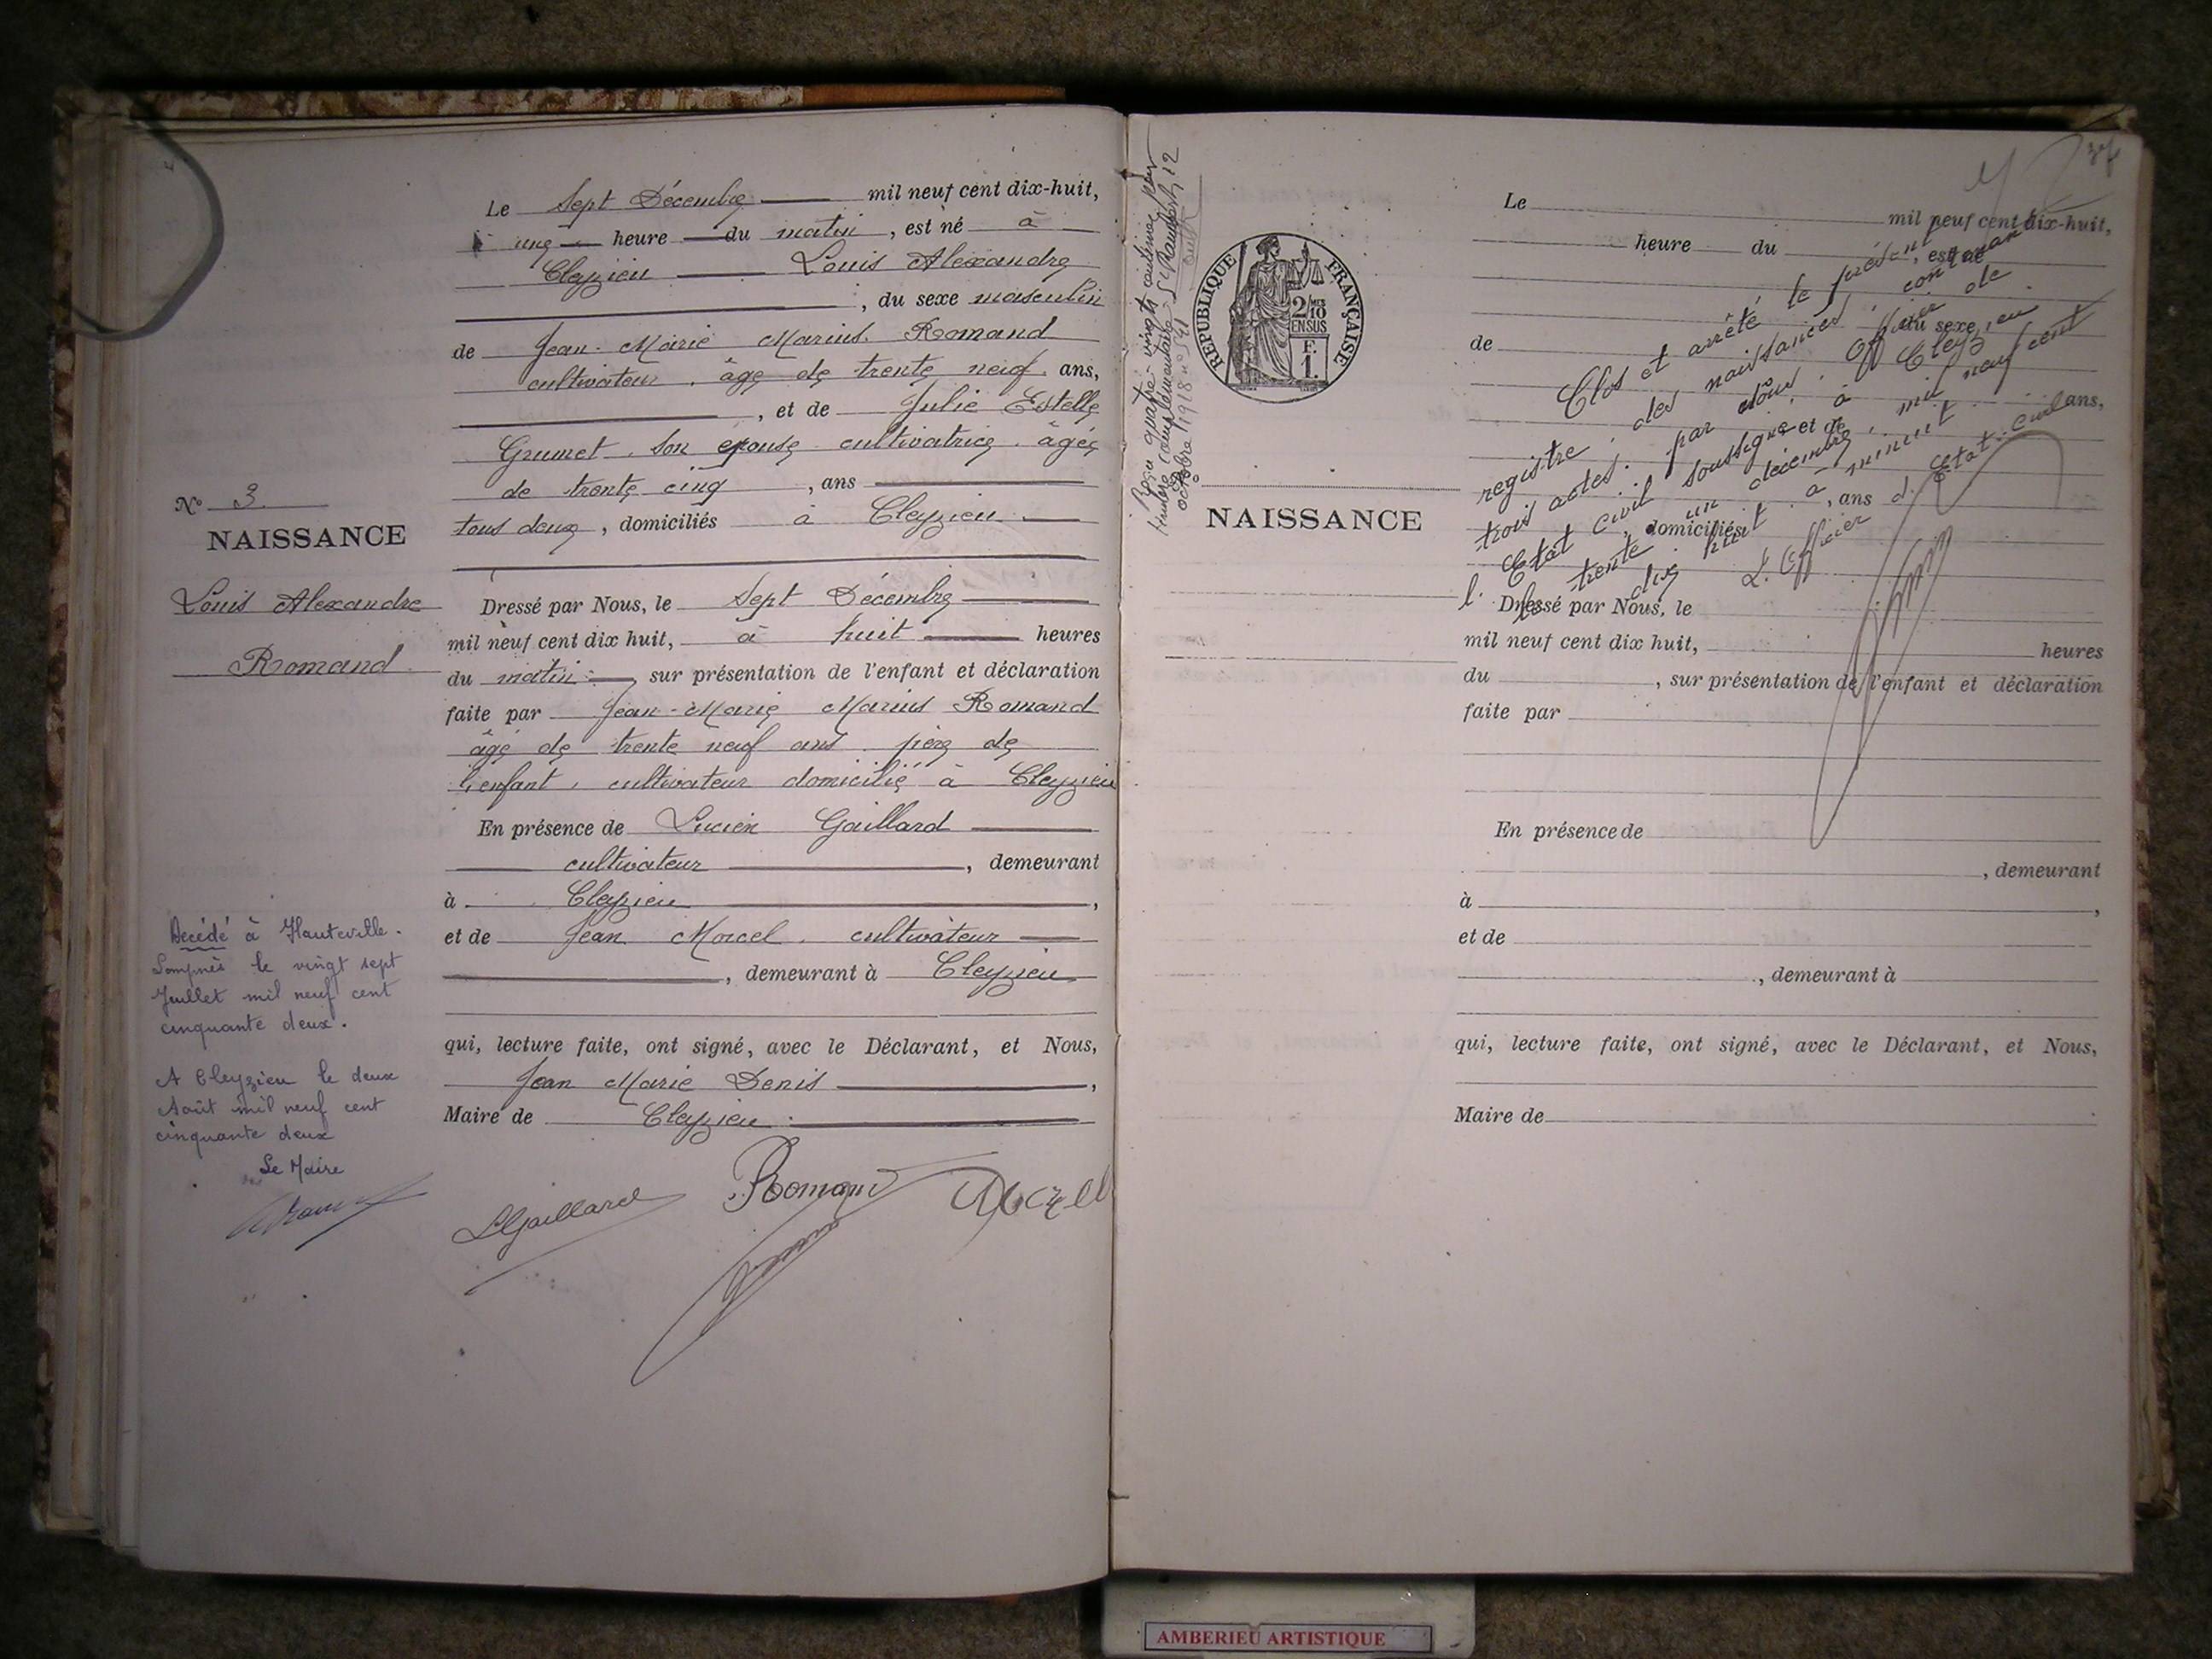 N° 3.
NAISSANCE
Louis Alexandre
Romand
Décédé à Hauteville-
Lompnès le vingt sept
Juillet mil neuf cent
cinquante deux.
A Cleyzieu le deux
Août mil neuf cent
cinquante deux
Le Maire
Le Sept Décembre mil neuf cent dix-huit,
une heure du matin, est né à
Cleyzieu Louis Alexandre
, du sexe masculin
de Jean-Marie Marius Romand
cultivateur, âgé de trente neuf ans,
, et de Julie Estelle
Grumet, son épouse cultivatrice, âgée
de trente cinq, ans
tous deux, domiciliés à Cleyzieu
Dressé par Nous, le Sept Décembre
mil neuf cent dix huit, à huit heures
du matin, sur présentation de l'enfant et déclaration
faite par Jean-Marie Marius Romand
âgé de trente neuf ans, père de
l'enfant, cultivateur domicilié à Cleyzieu
En présence de Lucien Gaillard
cultivateur, demeurant
à Cleyzieu,
et de Jean Morcel, cultivateur
, demeurant à Cleyzieu
qui, lecture faite, ont signé, avec le Déclarant, et Nous,
Jean Marie Denis,
Maire de Cleyzieu
LGaillard Romand
quatre-vingts centimes pour
octobre 1918 n°
RÉPUBLIQUE FRANÇAISE
2/10 MES
EN SUS
F.
1.
NAISSANCE
Le mil neuf cent dix-huit,
heure du , est né
, du sexe
de
ans,
, et de
, ans
, domiciliés
Clos et arrêté le présent
registre des naissances contenant
trois actes. par nous, Officier de
l'Etat civil soussigné à Cleyzieu
le trente un décembre mil neuf cent
dix huit à minuit
L'Officier d'Etat-Civil
Dressé par Nous, le
mil neuf cent dix huit, heures
du , sur présentation de l'enfant et déclaration
faite par
En présence de
, demeurant
à ,
et de
, demeurant à
qui, lecture faite, ont signé, avec le Déclarant, et Nous,
Maire de
AMBERIEU ARTISTIQUE